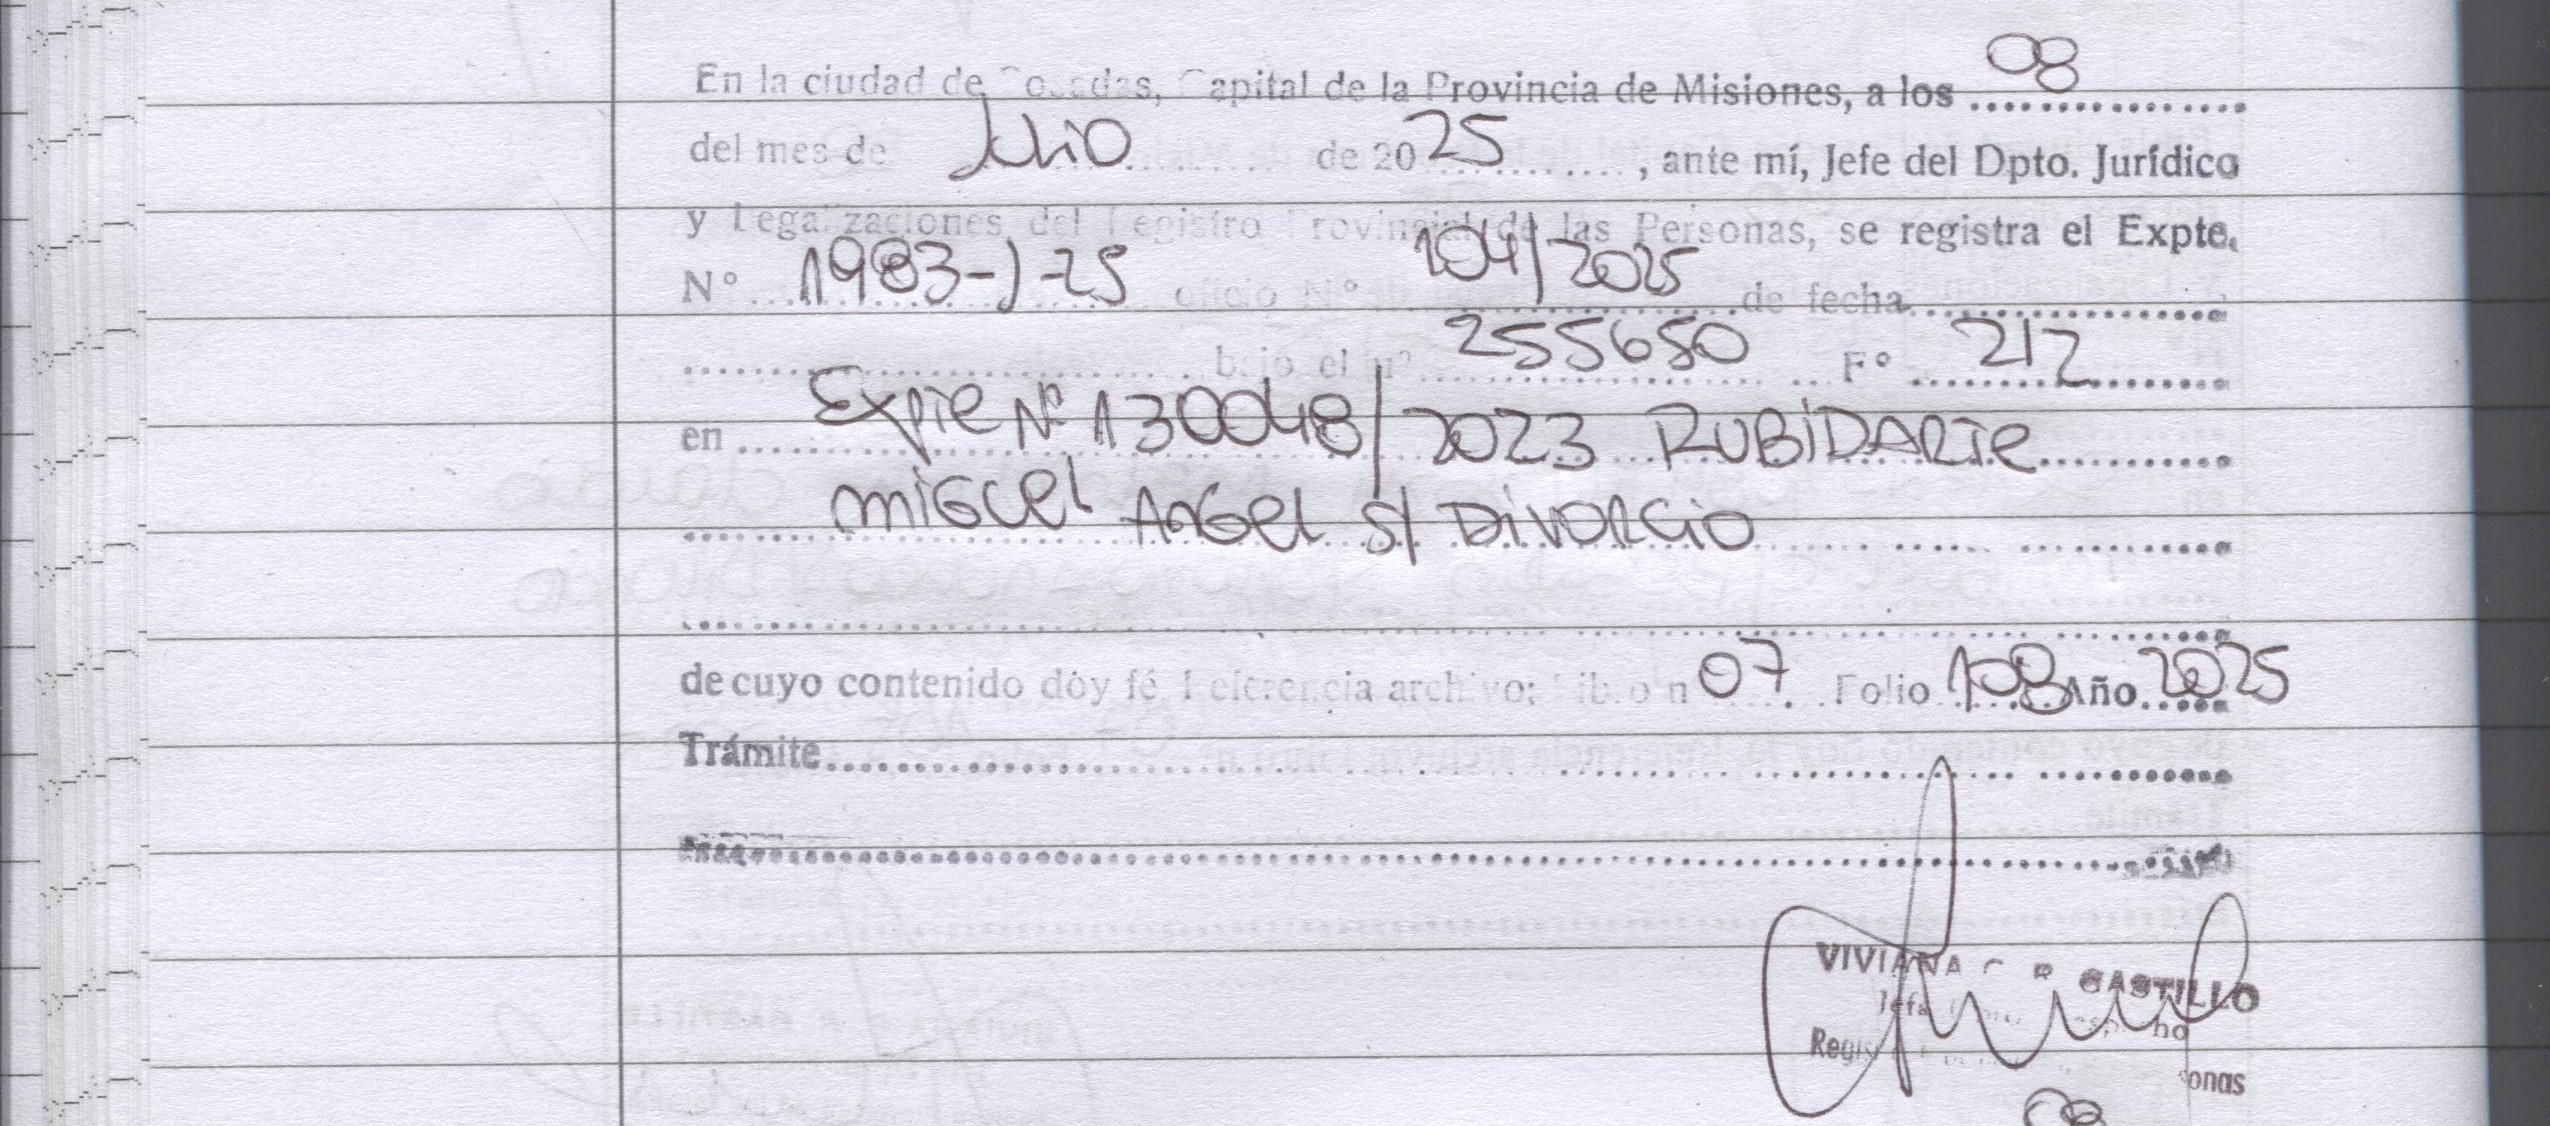 En la ciudad de Posadas, Capital de la Provincia de Misiones, a los 08
del mes de Julio de 2025, ante mí, Jefe del Dpto. Jurídico
y Legalizaciones del Registro Provincial de las Personas, se registra el Expte.
Nº 1983-J-25 oficio Nº 104/2025 de fecha
bajo el nº 255650 Fº 212
en Expte Nº 130048/2023 RUBIDARTE
MIGUEL ANGEL S/ DIVORCIO
de cuyo contenido doy fé. Referencia archivo: Libro n 07 Folio 108 Año 2025
Trámite
VIVIANA CASTILLO
Jefa
08